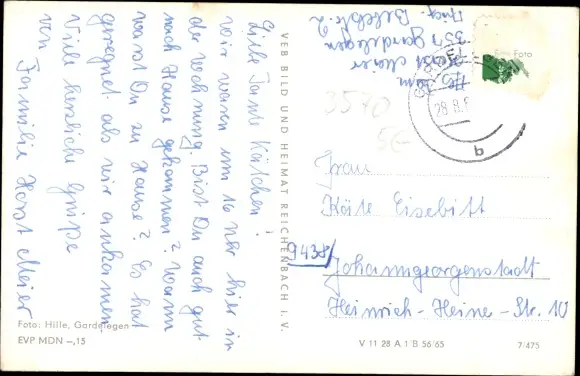 Liebe Tante Kätchen!
Wir waren um 16 Uhr hier in
der Wohnung. Bist Du auch gut
nach Hause gekommen? Wann
warst Du zu Hause? Es hat
geregnet als wir ankamen
Viele herzliche Grüße
von Familie Horst Meier
Foto: Hille, Gardelegen
EVP MDN –,15
VEB BILD UND HEIMAT REICHENBACH I. V.
Abs. Fam.
Horst Meier
357 Gardelegen
Foto
28.8.
b
3570
5€
Frau
Käte Eisebitt
9438/
Johanngeorgenstadt
Heinrich-Heine-Str. 10
V 11 28 A 1 B 56/65
7/475